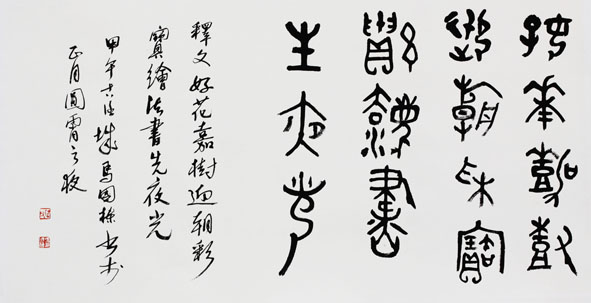 好華嘉樹
迎朝采寶
繪灋書
生夜光
釋文 好花嘉樹迎朝彩
寶繪法書生夜光
甲午 城馬國 書於
正月圓霄之夜